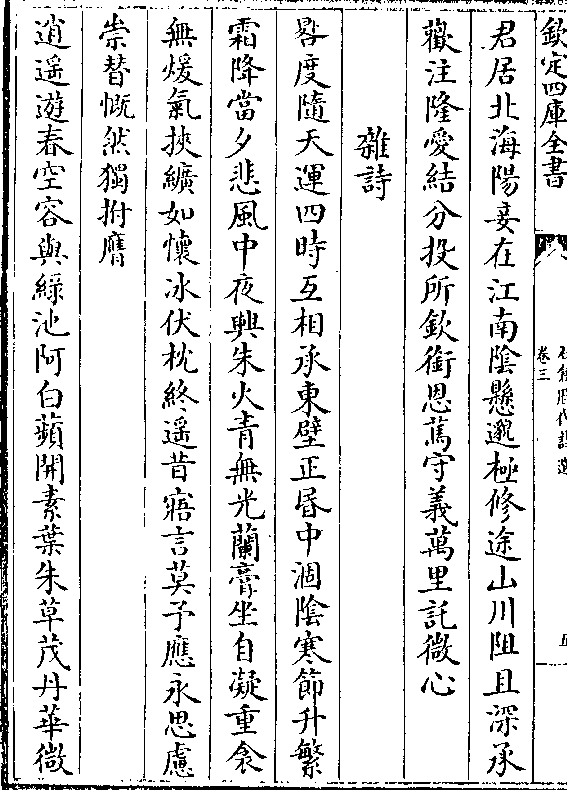 欽定四庫全書
卷三
君居北海陽妾在江南陰懸邈極修途山川阻且深承
歡注隆愛結分投所欽銜恩篤守義萬里託微心
雜詩
晷度隨天運四時互相承東壁正昬中涸陰寒節升繁
霜降當夕悲風中夜興朱火青無光蘭膏坐自凝重衾
無煖氣挾纊如懷冰伏枕終遥昔寤言莫予應永思慮
崇替慨然獨拊膺
逍遥遊春空容與緑池阿白蘋開素葉朱草茂丹華微